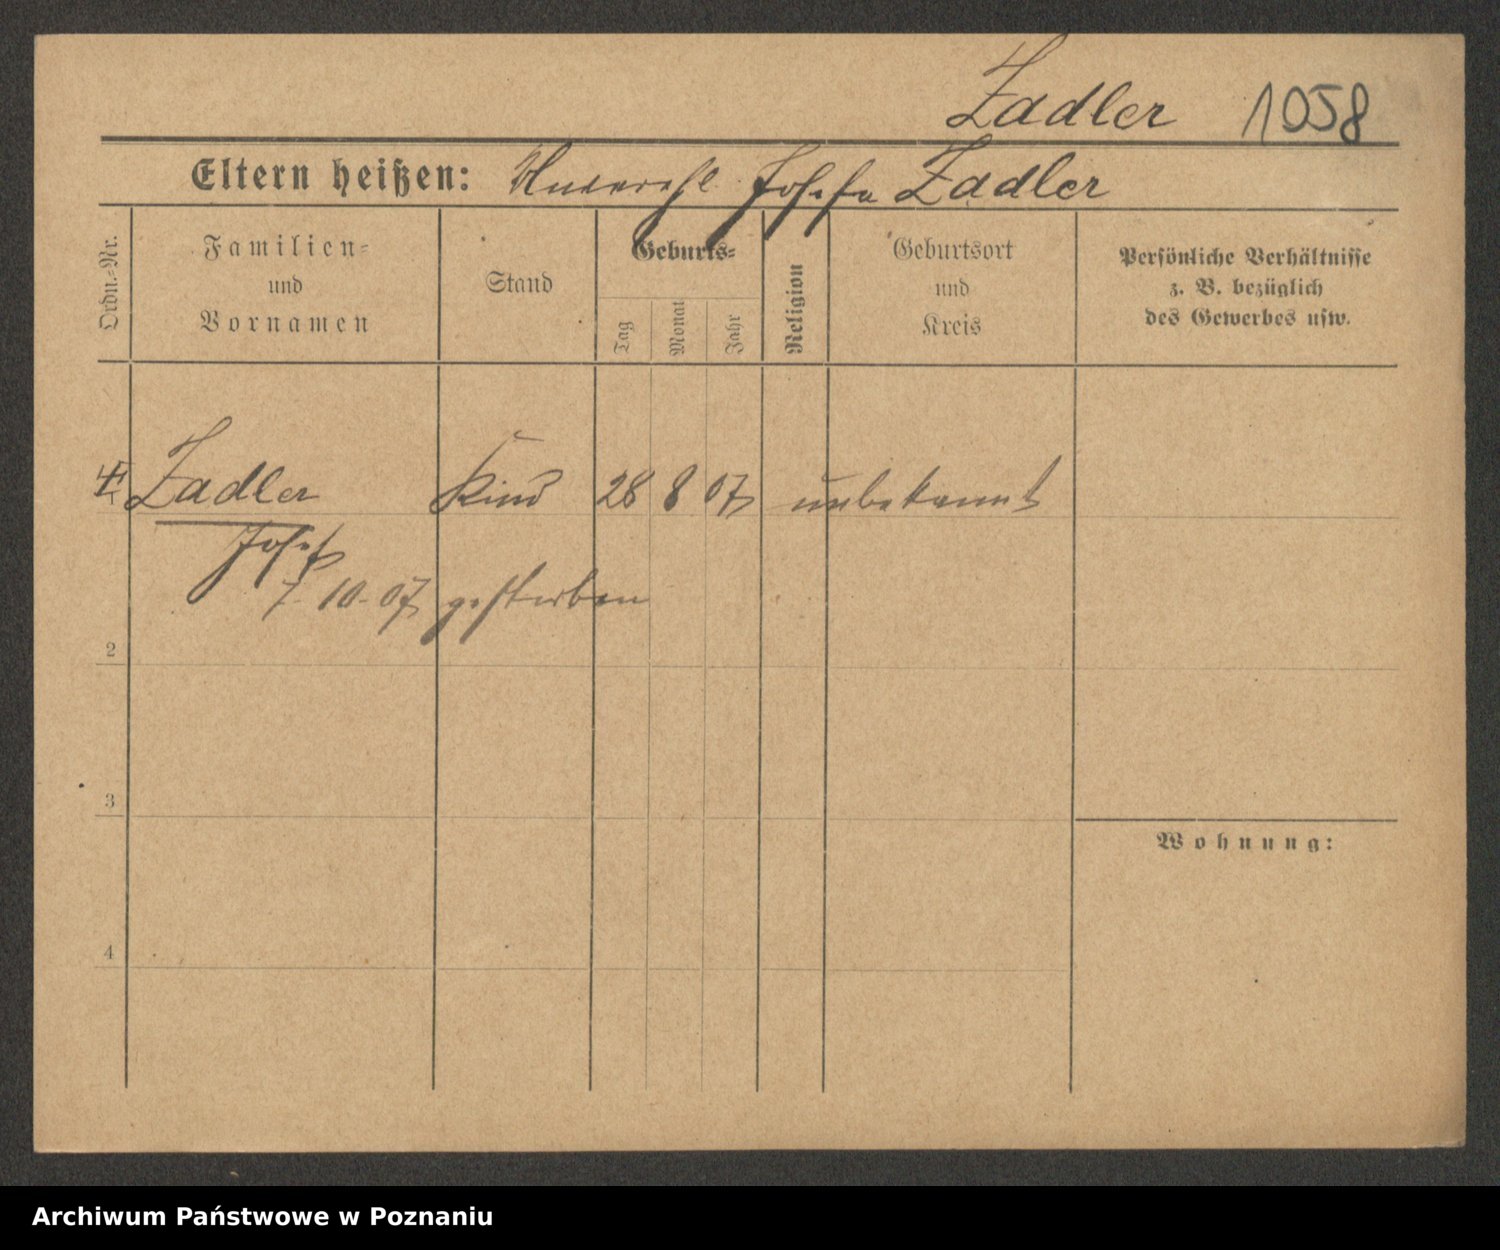 Zadler 1058
Eltern heißen: Unverehl. Josefa Zadler
Ordn.-Nr.
Familien-
und
Vornamen
Stand
Geburts-
Tag
Monat
Jahr
Religion
Geburtsort
und
Kreis
Persönliche Verhältnisse
z. B. bezüglich
des Gewerbes usw.
Zadler Kind 28 8 07 unbekannt
Josef
7. 10. 07 gestorben
2
3
Wohnung:
4
Archiwum Państwowe w Poznaniu